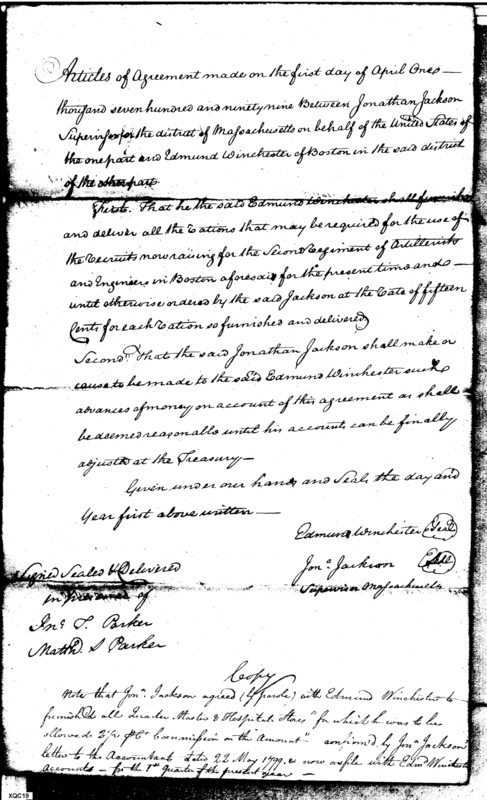 Articles of Agreement made on the first day of April One
thousand seven hundred and ninety nine Between Jonathan Jackson
Supervisor for the district of Massachusetts on behalf of the United States of
the one part and Edmund Winchester of Boston in the said district
of the other part.
First. That he the said Edmund Winchester shall furnish
and deliver all the Rations that may be required for the use of
the Recruits now raising for the Second Regiment of Artillerists
and Engineers in Boston aforesaid for the present time and
until otherwise ordered by the said Jackson at the Rate of fifteen
Cents for each Ration so furnished and delivered
Second. That the said Jonathan Jackson shall make or
cause to be made to the said Edmund Winchester such
advances of money on account of this agreement as shall
be deemed reasonable until his accounts can be finally
adjusted at the Treasury—
Given under our hands and Seals the day and
Year first above written—
Edmund Winchester Seal
Jonª. Jackson Seal
Supervisor Massachusetts
Signed Sealed & Delivered
in presence of
Jnº. T. Parker
Matthd. S Parker
Copy
Note that Jonª. Jackson agreed (by parole) with Edmund Winchester to
furnish all Quarter Master & Hospital Stores for which he was to be
allowed Commission on the "Amount" confirmed by Jonª Jackson
letter to the Accountant dated 22 May 1799 & now on file with Edmd Winchester
Accounts — for the 1st Quarter of the present year —
XQC19